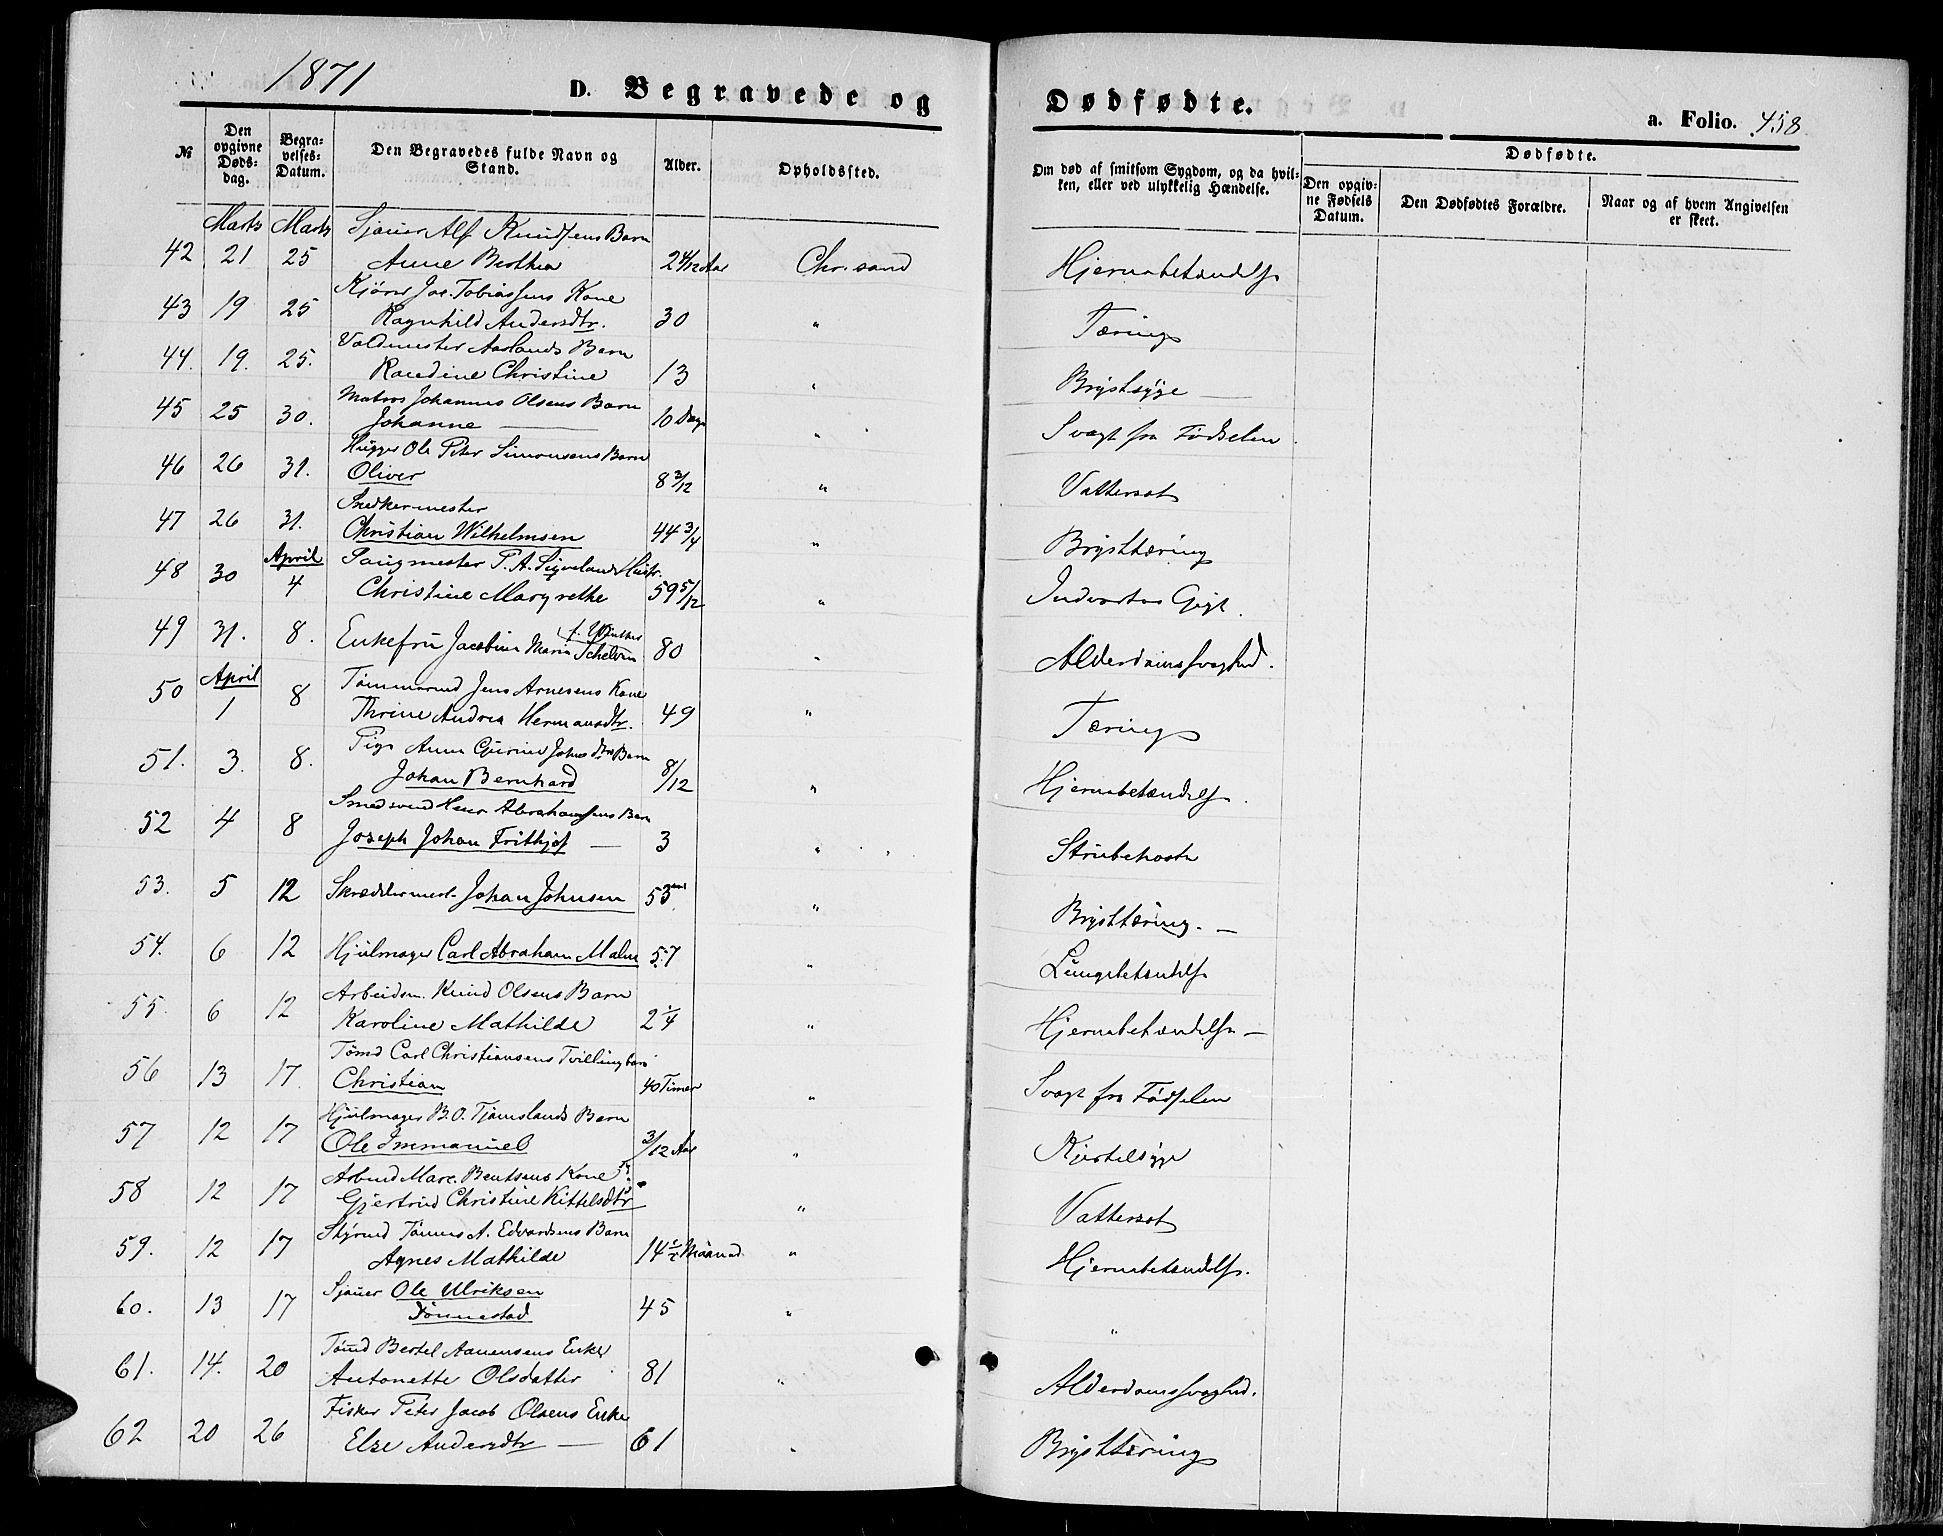 1871
D. Begravede og Dødfødte.
a. Folio. 458
№
Den opgivne Døds-dag.
Begra-velses-Datum.
Den Begravedes fulde Navn og Stand.
Alder.
Opholdssted.
Om død af smitsom Sygdom, og da hvil-ken, eller ved ulykkelig Hændelse.
Dødfødte.
Den opgiv-ne Fødsels Datum.
Den Dødfødtes Forældre.
Naar og af hvem Angivelsen er skeet.
Marts Marts Sjouer Alf Knudsens Barn
42 21 25 Anne Berthea 2 4/12 Aar Chr.sand Hjernebetændelse
Jac. Tobiassens Kone
43 19 25 Ragnhild Andersdtr. 30 " Tæring
Voldmester Aaslands Barn
44. 19. 25. Randine Christine 13 " Brystsyge —
Matros Johannes Olsens Barn
45 25 30. Johanne — 10 Dage " Svagt fra Fødselen
Hugger Ole Peter Simonsens Barn
46 26 31. Oliver 8 3/12 " Vattersot
Snedkermester
47 26 31. Christian Wilhelmsen 44 3/4 " Brysttæring
April Saugmester P. A. Sigvelands Hustr.
48 30 4 Christine Margrethe 59 5/12 " Indvortes Gigt.
f. Winther
49 31. 8. Enkefru Jacobine Marie 80 " Alderdomssvaghed.
April Tømmermd Jens Arnesens Kone
50 1 8 Thrine Andrea Hermansdtr. 49 " Tæring
Pige Anne Gurine Johnsdtrs Barn
51. 3. 8. Johan Bernhard 8/12 " Hjernebetændelse.
Smedsvend Henr Abrahamsens Barn
52 4 8 Joseph Johan Frithjof — 3 " Strubehoste
53. 5 12 Skræddermest. Johan Johnsen 53 " Brysttæring. —
54. 6 12 Hjulmager Carl Abraham Malm 57 " Lungebetændelse
Arbeidsm. Knud Olsens Barn
55. 6 12 Karoline Mathilde 2 1/4 " Hjernebetændelse —
Tømd Carl Christiansens Tvillingbarn
56 13 17. Christian 40 Timer " Svagt fra Fødselen
Hjulmager B. O. Tjomslands Barn
57 12 17 Ole Immanuel 3/12 Aar " Kjertelsyge
Arbmd Marc. Bentsens Kone
58 12 17 Gjertrud Christine Kittelsdtr " Vattersot
Styrmd Tønnes A. Edvardsens Barn
59. 12 17 Agnes Mathilde 14 1/2 Maaned " Hjernebetændelse.
Sjouer Ole Ulriksen
60. 13 17 Dønnestad 45 " "
Tømd Bertel Aanensens Enke
61. 14. 20 Antonette Olsdatter 81 " Alderdomssvaghed.
Fisker Peter Jacob Olsens Enke
62 20 26 Else Andersdtr — 61 " Brysttæring